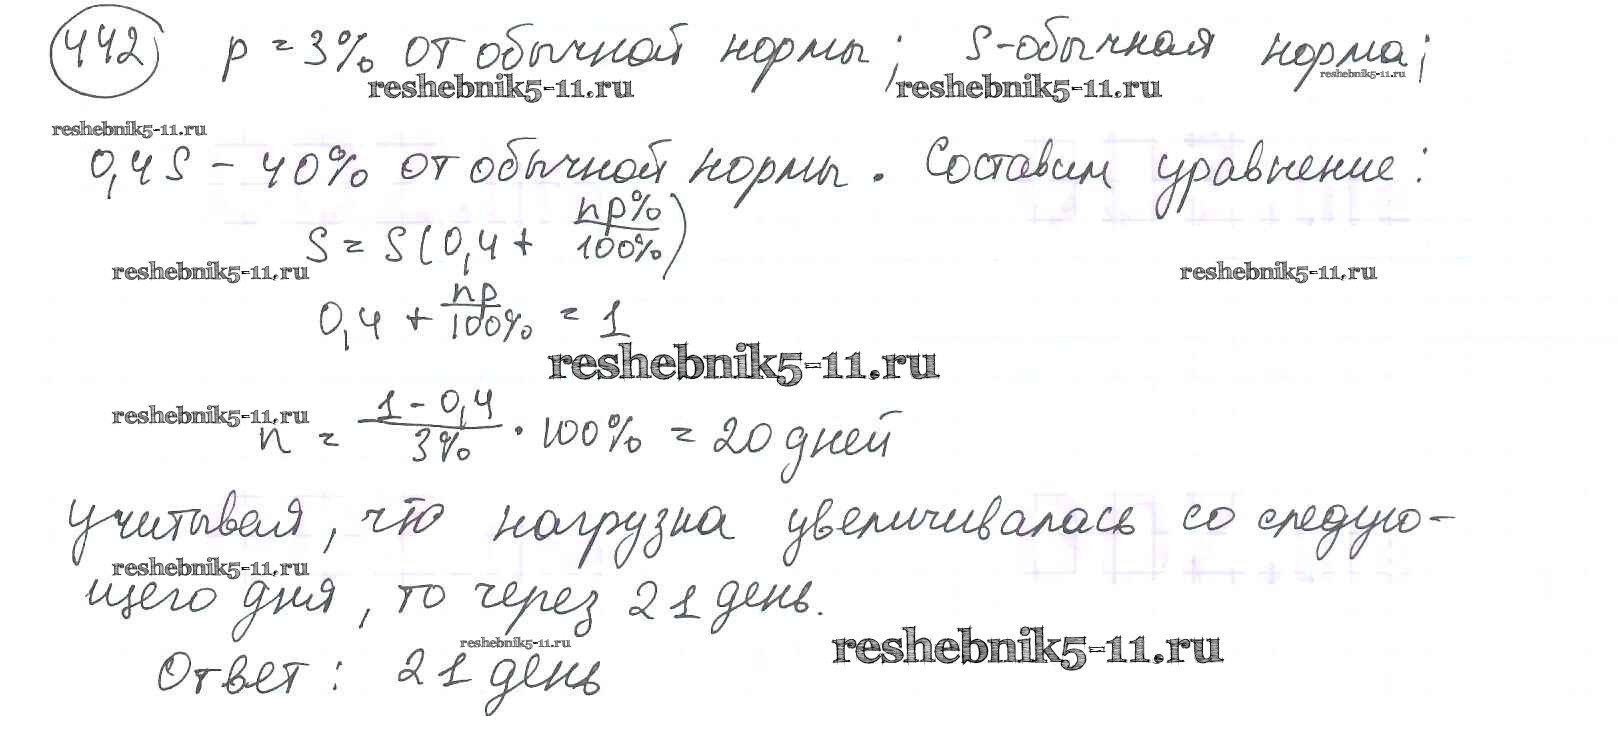 442 p = 3% от обычной нормы; S-обычная норма;
reshebnik5-11.ru reshebnik5-11.ru reshebnik5-11.ru
reshebnik5-11.ru
0,4S - 40% от обычной нормы. Составим уравнение:
S = S(0,4 + np%/100%)
reshebnik5-11.ru reshebnik5-11.ru
0,4 + np/100% = 1
reshebnik5-11.ru
reshebnik5-11.ru
n = 1-0,4/3% · 100% = 20 дней
учитывая, что нагрузка увеличивалась со следую-
reshebnik5-11.ru
щего дня, то через 21 день.
reshebnik5-11.ru reshebnik5-11.ru
Ответ: 21 день